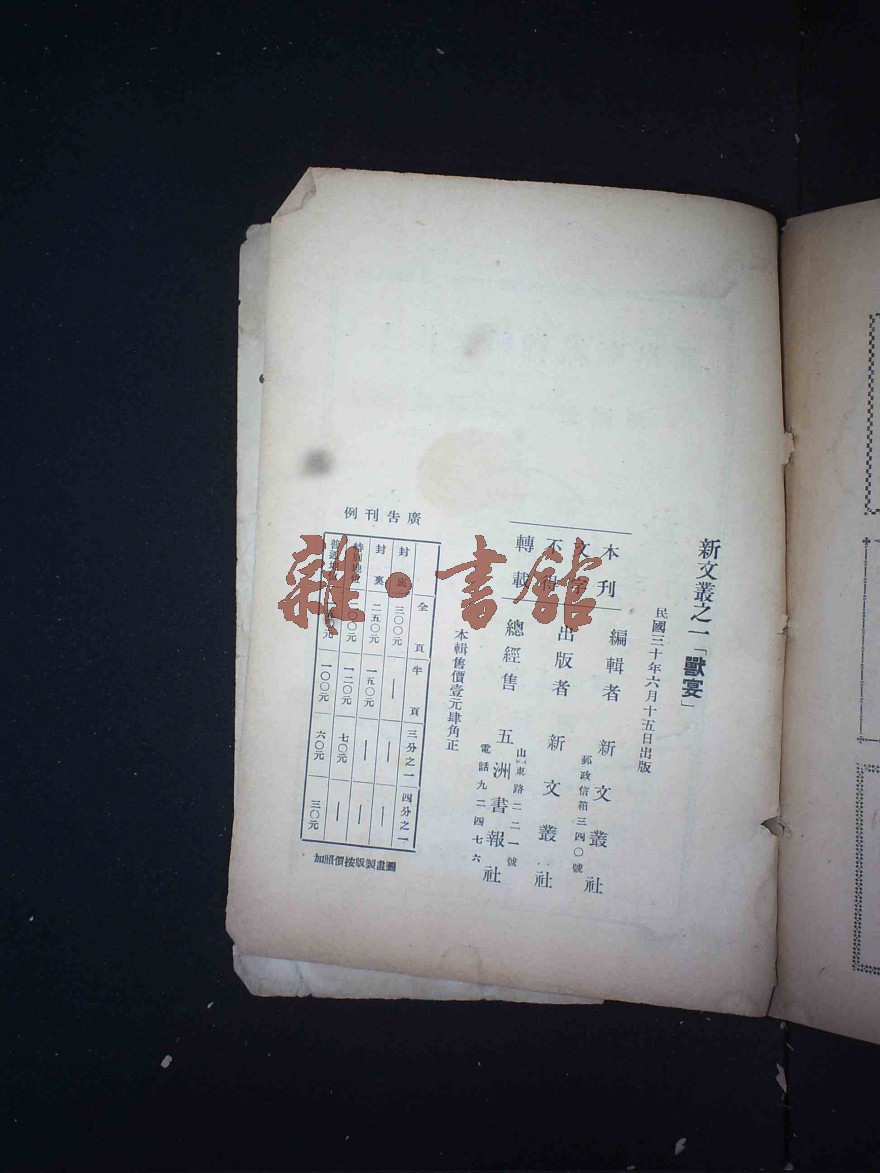 新文叢之一「獸宴」
民國三十年六月十五日出版
本刊
文字
不得
轉載
編輯者 新文叢社
郵政信箱三四〇號
出版者 新文叢社
總經售 五洲書報社
山東路二二一號
電話九二四七六
本輯售價壹元肆角正
廣告刊例
全頁 半頁 三分之一 四分之一
封底 三〇〇元 — — —
封裏 二五〇元 一五〇元 — —
特別地位 二〇〇元 一二〇元 七〇元 —
普通地位 一〇〇元 六〇元 三〇元
圖畫製版按價照加
雜·書館